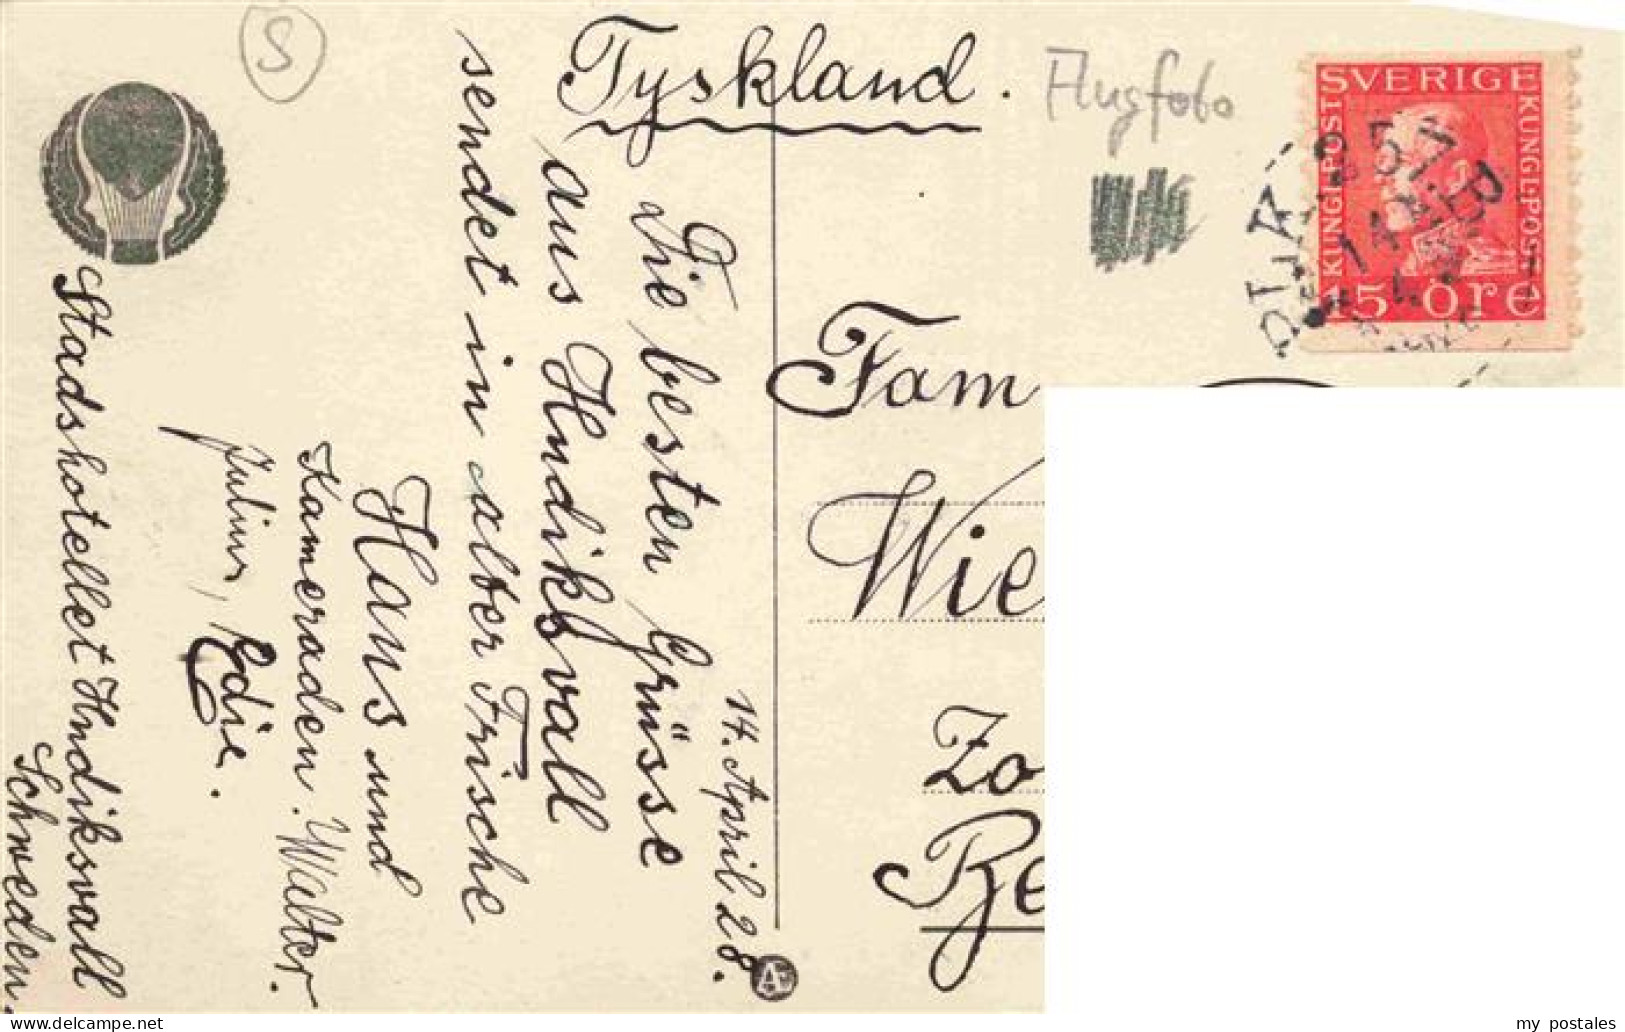 S
Tyskland.
Flugfoto
SVERIGE
KUNGL·POST
KUNGL·POST
15 öre
257.B
14
14. April 28.
Die besten Grüsse
aus Hudiksvall
sendet in alter Frische
Hans und
Kameraden. Walter.
Julius, Edie.
Stadshotellet Hudiksvall
Schweden.
Fam
Wie
Zo
Be
Æ
my postales